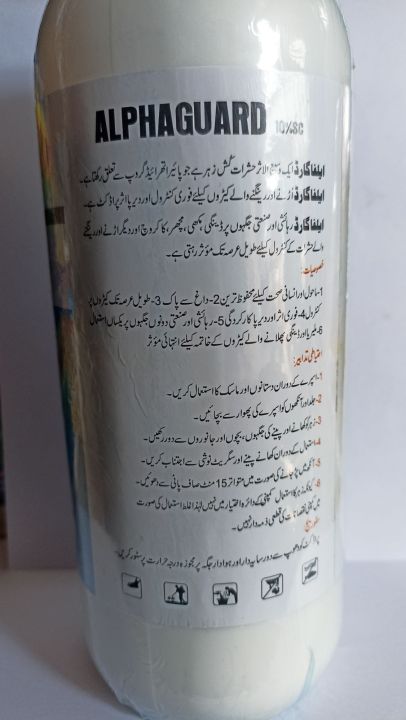 ALPHAGUARD 10%SC
ایلفا گارڈ ایک وسیع الاثر حشرات کُش زہر ہے جو پائیراتھرائیڈ گروپ سے تعلق رکھتا ہے۔
ایلفا گارڈ اُڑنے اور رینگنے والے کیڑوں کیلئے فوری کنٹرول اور دیرپا اثر پراڈکٹ ہے۔
ایلفا گارڈ رہائشی اور صنعتی جگہوں پر ڈینگی، مکھی، مچھر، کاکروچ اور دیگر اڑنے اور رینگنے
والے حشرات کے کنٹرول کیلئے طویل عرصہ تک مؤثر رہتی ہے۔
خصوصیات:
1- ماحول اور انسانی صحت کیلئے محفوظ ترین 2- داغ سے پاک 3- طویل عرصہ تک کیڑوں پر
کنٹرول 4- فوری اثر اور دیرپا کارکردگی 5- رہائشی اور صنعتی دونوں جگہوں پر یکساں استعمال
6- ملیریا اور ڈینگی پھیلانے والے کیڑوں کے خاتمہ کیلئے انتہائی مؤثر
احتیاطی تدابیر:
1- اسپرے کے دوران دستانوں اور ماسک کا استعمال کریں۔
2- جلد اور آنکھوں کو اسپرے کی پھوار سے بچائیں۔
3- زہر کو کھانے اور پینے کی جگہوں، بچوں اور جانوروں سے دور رکھیں۔
4- استعمال کے دوران کھانے پینے اور سگریٹ نوشی سے اجتناب کریں۔
5- آنکھ میں پڑ جانے کی صورت میں متواتر 15 منٹ صاف پانی سے دھوئیں۔
6- کیونکہ زہر کا استعمال کمپنی کے دائرہ اختیار میں نہیں لہٰذا غلط استعمال کی صورت
میں کمپنی نقصانات کی قطعی ذمہ دار نہیں۔
سٹوریج:
پراڈکٹ کو دھوپ سے دور سایہ دار اور ہوادار جگہ پر مجوزہ درجہ حرارت پر سٹور کریں۔